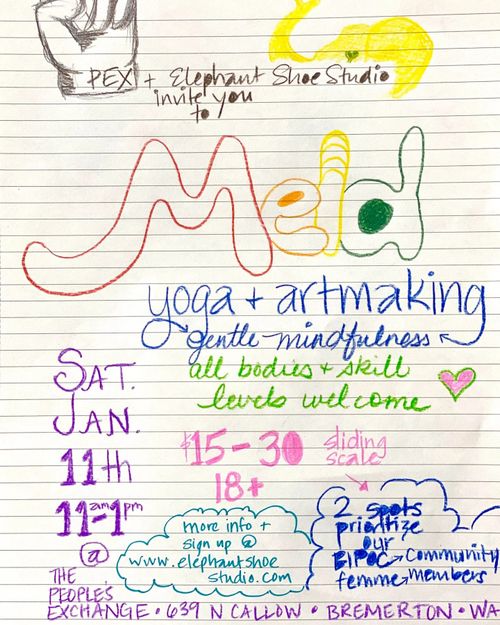 PEX + Elephant Shoe Studio
invite you
to
Meld
yoga + artmaking
gentle mindfulness
all bodies + skill
levels welcome
SAT.
JAN.
11th
11am-1pm
@
THE
PEOPLE'S
EXCHANGE • 639 N CALLOW • BREMERTON • WA
$15-30
sliding
scale
18+
more info +
sign up @
www.elephantshoe
studio.com
2 spots
prioritize
our
BIPOC → community
femme → members